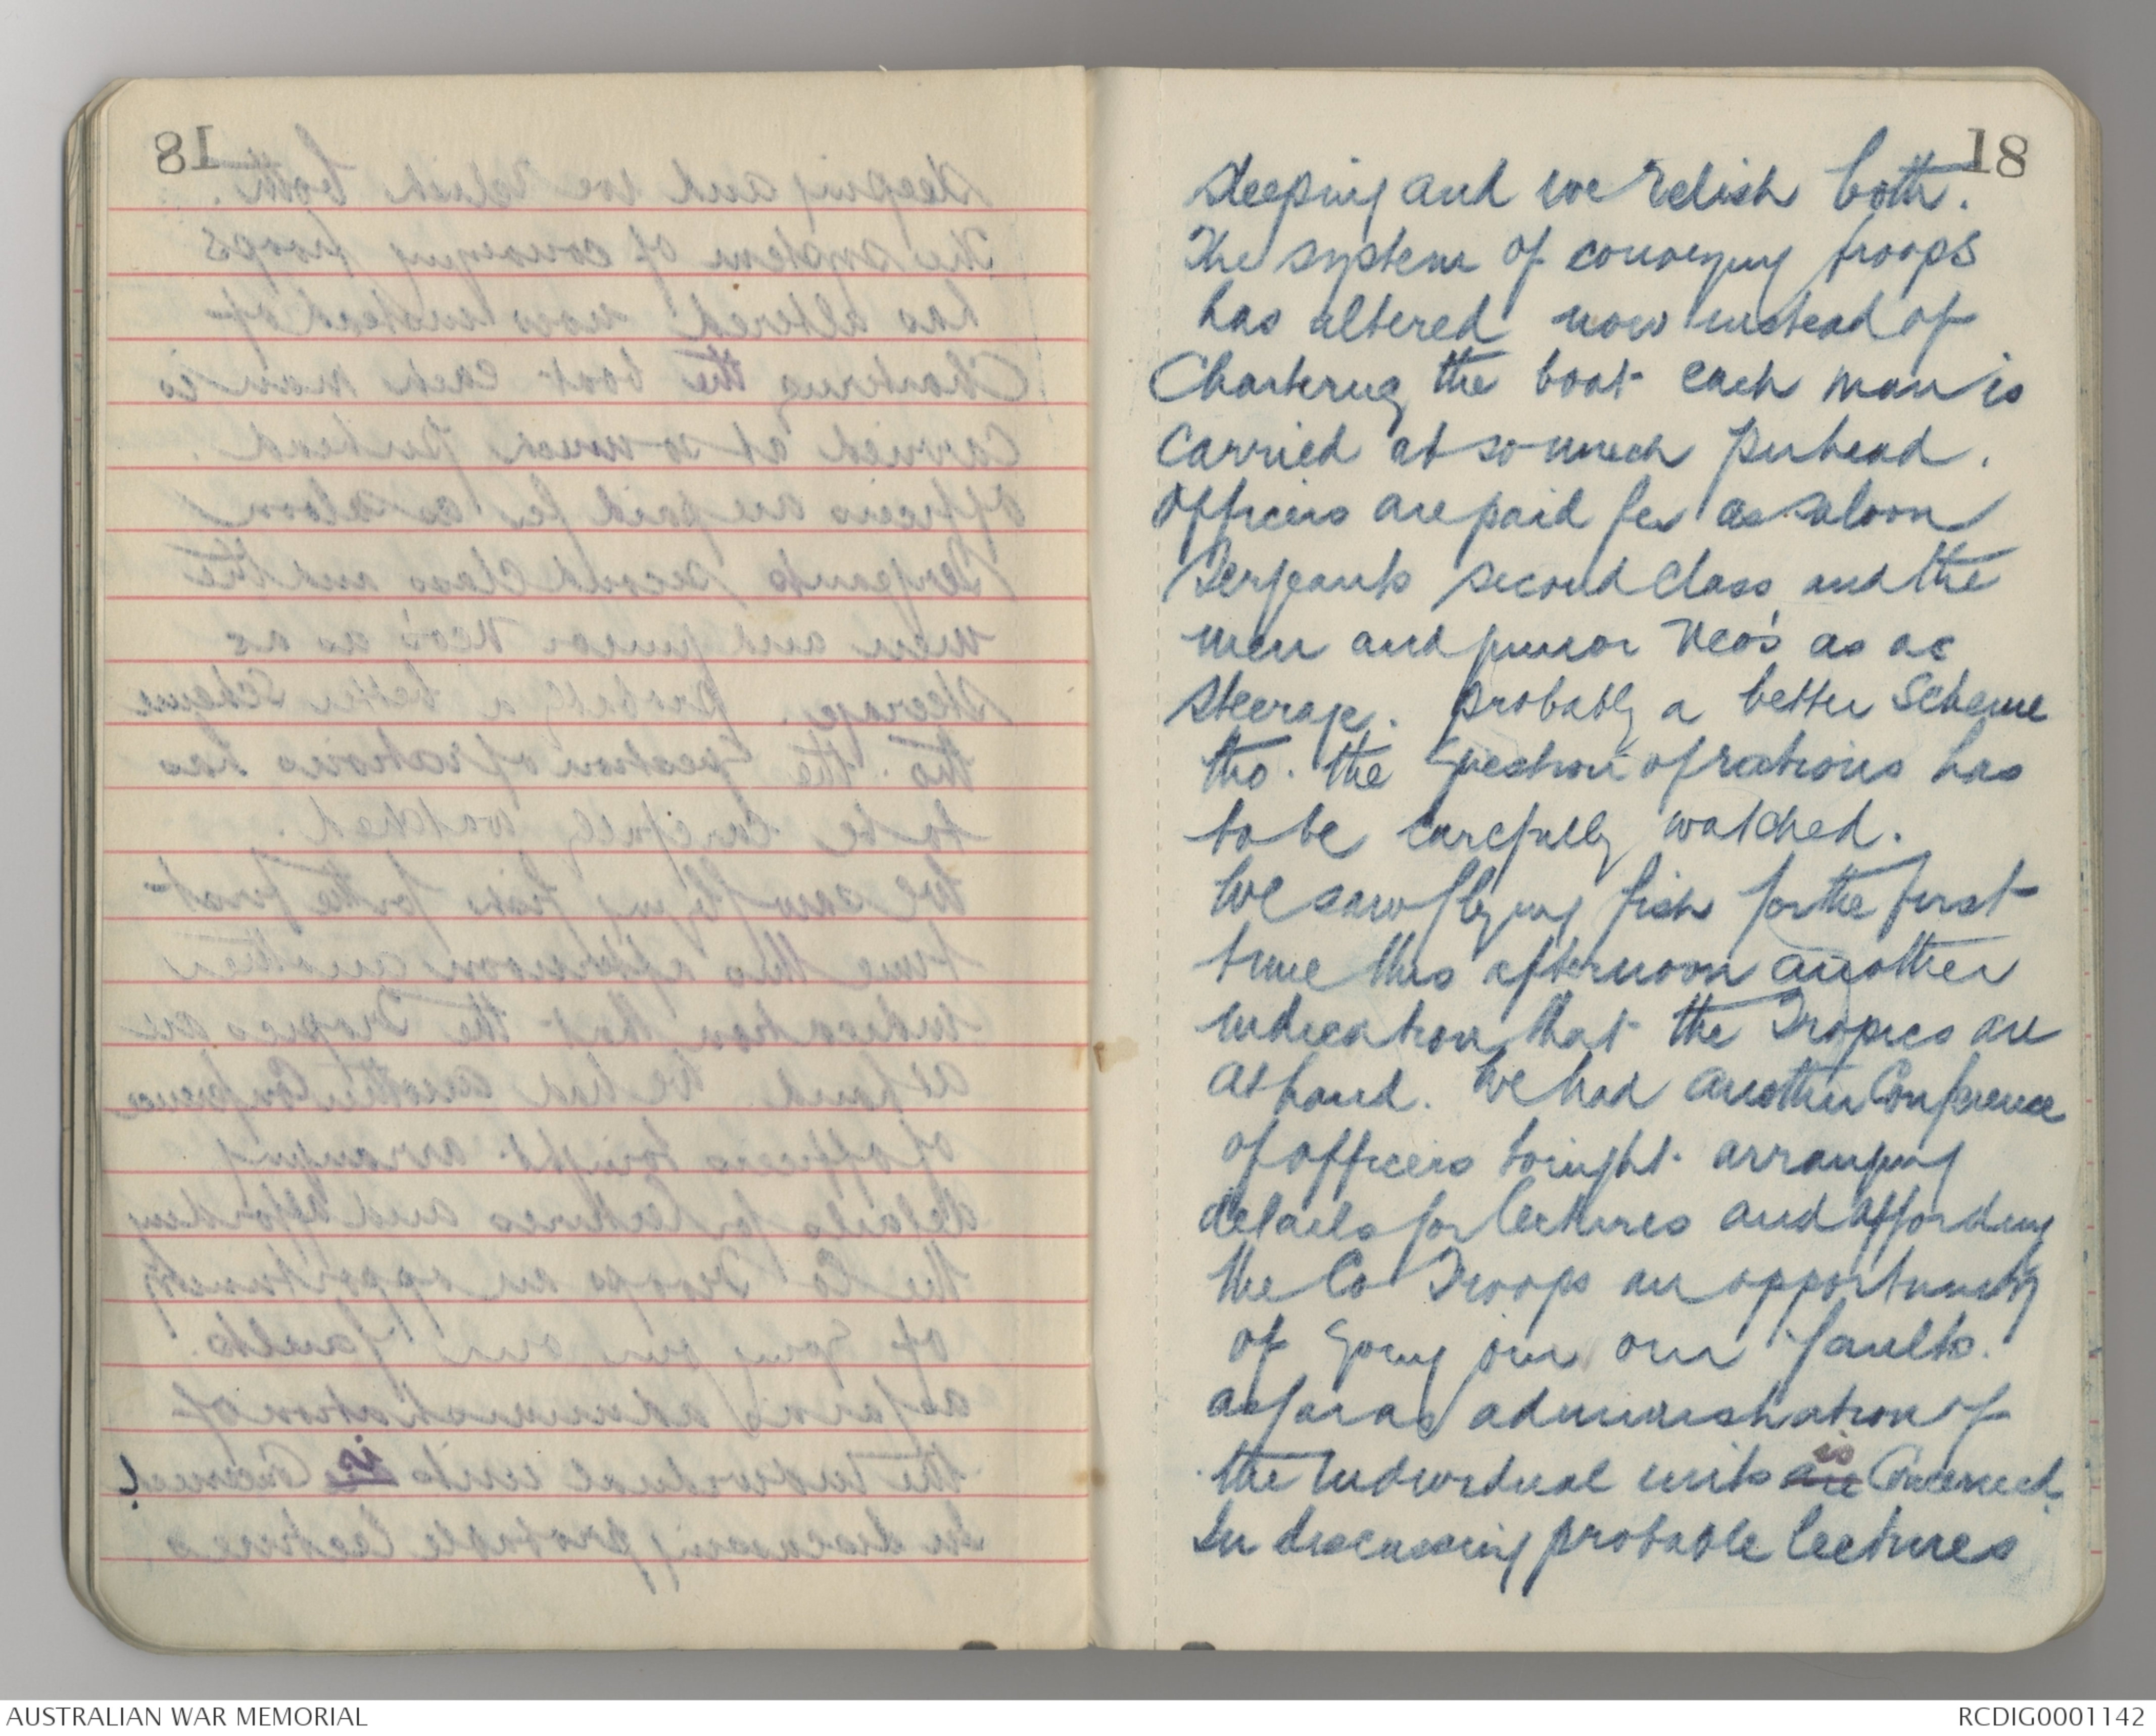 18
sleeping and we relish both.
The system of conveying troops
has altered now instead of
Chartering the boat each man is
Carried at so much per head.
Officers are paid for as saloon
Sergeants second Class and the
men and junior Nco's as as
steerage. probably a better Scheme
tho. the Question of rations has
to be carefully watched.
We saw flying fish for the first
time this afternoon another
indication that the Tropics are
at hand. We had another Conference
of officers tonight arranging
details for lectures and affording
the Co Troops an opportunity
of going our faults.
as far as administration of
the individual units are is Concerned.
In discussing probable lectures
AUSTRALIAN WAR MEMORIAL
RCDIG0001142